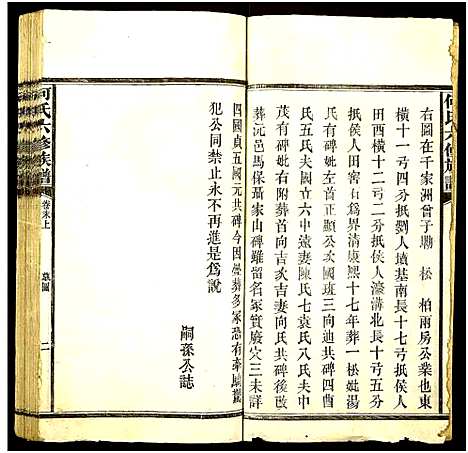 何氏六修族譜
右圖在千家洲曾子坳松柏兩房公業也東
橫十一弓四分抵劉人墳基南長十七弓抵侯人
田西橫十二弓二分抵侯人濠溝北長十弓五分
抵侯人田窖石爲界清康熙十七年葬一松妣湯
氏有碑左葬首正顯公次國班三向迪共碑四酉
氏五氏夫國立六中遠妻陳氏七袁氏八氏夫中
茂有碑妣右附葬首向吉次吉妻向氏共碑後改
葬沅邑馬保聶家山碑雖留名冢實廢穴三未詳
四國貞五國元共碑今因疊葬多冢恐有牽
犯公同禁止永不再進是爲說
嗣孫公誌
何氏六修族譜
卷末上
墓圖
二